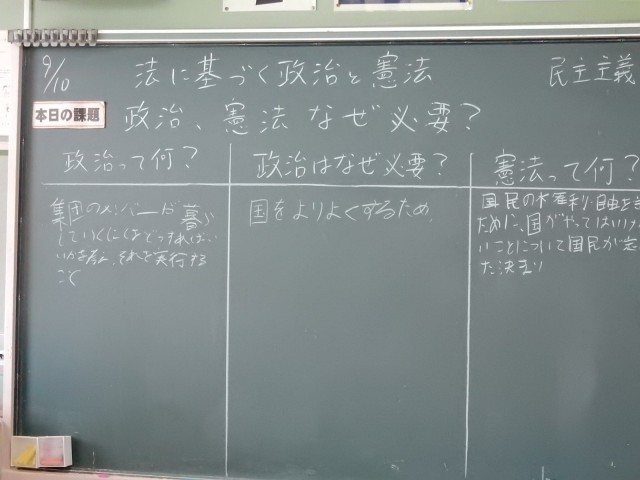 9/10 法に基づく政治と憲法 民主主義
本日の課題 政治、憲法なぜ必要?
政治って何?
集団のメンバーが暮ら
していくにはどうすればい
いか考え、それを実行する
こと
政治はなぜ必要?
国をよりよくするため
憲法って何?
国民の権利・自由を
ために、国がやってはいけ
いことについて国民が
た決まり